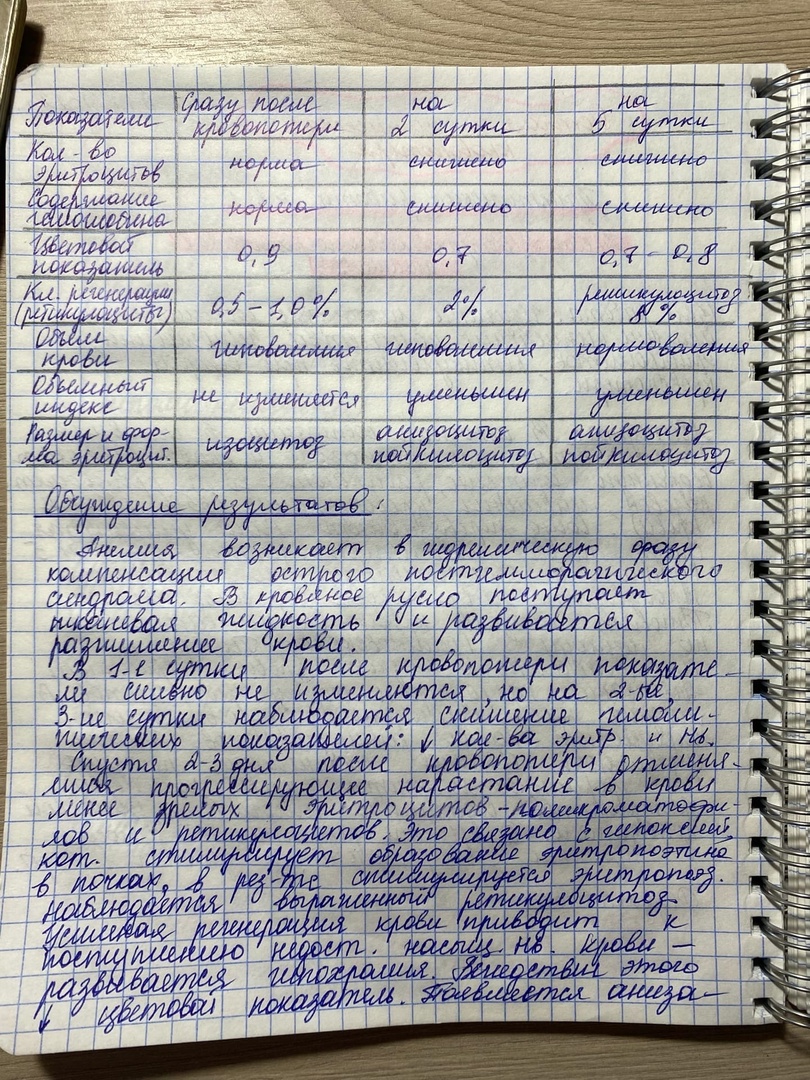 Показатели | Сразу после кровопотери | на 2 сутки | на 5 сутки
Кол-во эритроцитов | норма | снижено | снижено
Содержание гемоглобина | норма | снижено | снижено
Цветовой показатель | 0,9 | 0,7 | 0,7 - 0,8
Кл. регенерации (ретикулоциты) | 0,5 – 1,0 % | 2% | ретикулоцитоз 8 %
Объем крови | гиповолемия | гиповолемия | нормоволемия
Объемный индекс | не изменяется | уменьшен | уменьшен
Размер и фор-ма эритроцит. | изоцитоз | анизоцитоз пойкилоцитоз | анизоцитоз пойкилоцитоз
Обсуждение результатов:
Анемия возникает в гидремическую фазу
компенсации острого постгемморагического
синдрома. В кровяное русло поступает
тканевая жидкость и развивается
разжижение крови.
В 1-е сутки после кровопотери показате-
ли сильно не изменяются, но на 2-ые,
3-ие сутки наблюдается снижение гемати-
тических показателей: ↓ кол-ва эритр. и Hb.
Спустя 2-3 дня после кровопотери отмеча-
ется прогрессирующее нарастание в крови
менее зрелых эритроцитов - полихроматофи-
лов и ретикулоцитов. Это связано с гипоксией
кот. стимулирует образование эритропоэтина
в почках, в рез-те стимулируется эритропоэз.
Наблюдается выраженный ретикулоцитоз.
Усиленая регенерация крови приводит к
поступлению недост. насыщ. Hb. крови –
развивается гипохромия. Вследствии этого
↓ цветовой показатель. Появляется анизо-